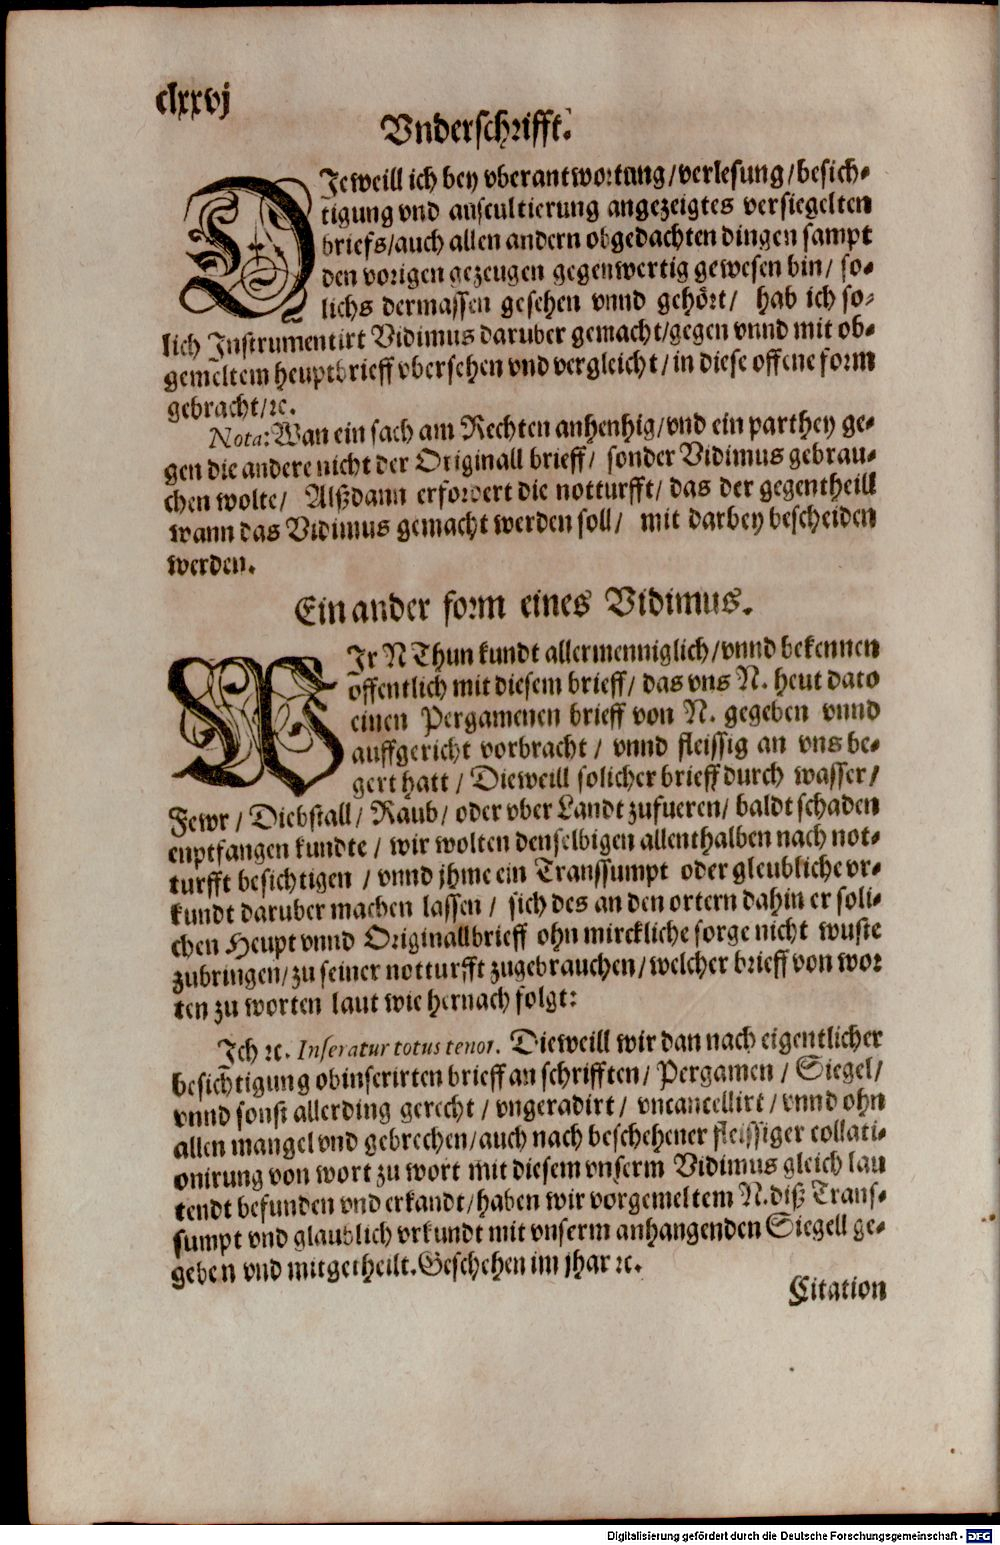 clxxvj
Vnderschrifft.
DJeweill ich bey vberantwortung/verlesung/besich-
tigung vnd auscultierung angezeigtes versiegelten
briefs/auch allen andern obgedachten dingen sampt
den vorigen gezeugen gegenwertig gewesen bin/ so-
lichs dermassen gesehen vnnd gehört/ hab ich so-
lich Instrumentirt Vidimus daruber gemacht/gegen vnnd mit ob-
gemeltem heuptbrieff vbersehen vnd vergleicht/in diese offene form
gebracht/ꝛc.
Nota: Wan ein sach am Rechten anhenhig/vnd ein parthey ge-
gen die andere nicht der Originall brieff/ sonder Vidimus gebrau-
chen wolte/ Alßdann erfordert die notturfft/ das der gegentheill
wann das Vidimus gemacht werden soll/ mit darbey bescheiden
werden.
Ein ander form eines Vidimus.
WJr N Thun kundt allermenniglich/vnnd bekennen
öffentlich mit diesem brieff/ das vns N. heut dato
einen Pergamenen brieff von N. gegeben vnnd
auffgericht vorbracht/ vnnd fleissig an vns be-
gert hatt/ Dieweill solicher brieff durch wasser/
Fewr/ Diebstall/ Raub/ oder vber Landt zufueren/ baldt schaden
enptfangen kundte/ wir wolten denselbigen allenthalben nach not-
turfft besichtigen/ vnnd jhme ein Transsumpt oder gleubliche vr-
kundt daruber machen lassen/ sich des an den ortern dahin er soli-
chen Heupt vnnd Originallbrieff ohn mirckliche sorge nicht wuste
zubringen/zu seiner notturfft zugebrauchen/welcher brieff von wor
ten zu worten laut wie hernach folgt:
Jch ꝛc. Inseratur totus tenor. Dieweill wir dan nach eigentlicher
besichtigung obinserirten brieff an schrifften/ Pergamen/ Siegel/
vnnd sonst allerding gerecht/ vngeradirt/ vncancellirt/ vnnd ohn
allen mangel vnd gebrechen/auch nach beschehener fleissiger collati-
onirung von wort zu wort mit diesem vnserm Vidimus gleich lau
tendt befunden vnd erkandt/haben wir vorgemeltem N. diß Trans-
sumpt vnd glaublich vrkundt mit vnserm anhangenden Siegell ge-
geben vnd mitgetheilt. Geschehen im jhar ꝛc.
Citation
Digitalisierung gefördert durch die Deutsche Forschungsgemeinschaft - DFG